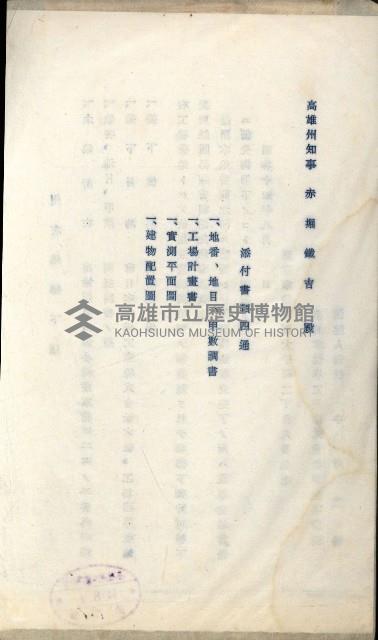 高雄州知事 赤堀鐵吉殿
添付書類四通
一、地番、地目、甲數調書
一、工場計畫書
一、實測平面圖
一、建物配置圖
高雄市立歷史博物館
KAOHSIUNG MUSEUM OF HISTORY